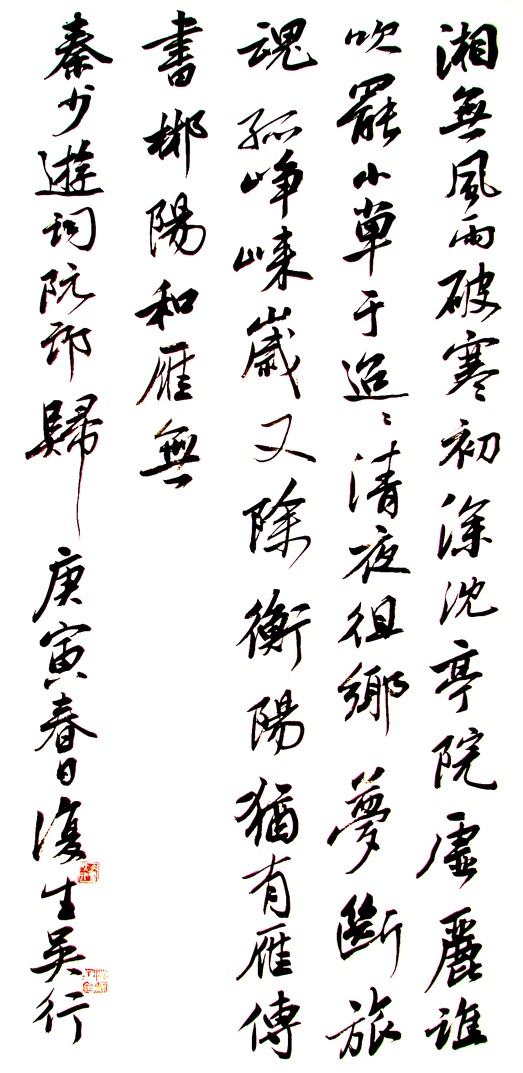 湘無風雨破寒初深沈亭院虛麗誰
吹罷小單于迢々清夜徂鄉夢斷旅
魂孤崢嶸歲又除衡陽猶有雁傳
書郴陽和雁無
秦少遊詞阮郎歸 庚寅春日復生吳行